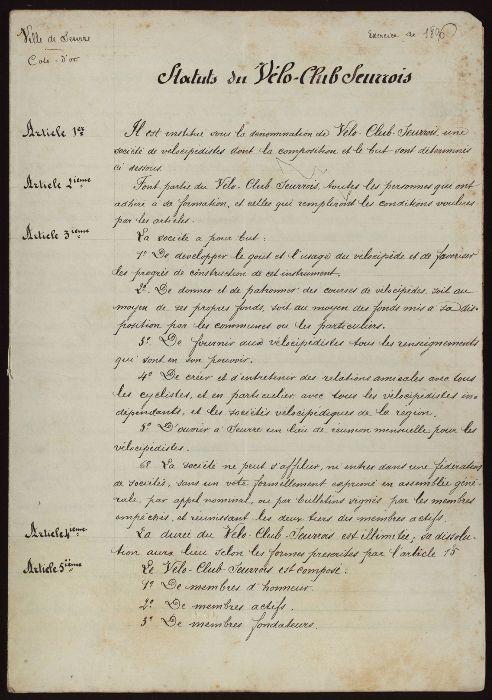 Ville de Seurre
Exercice de 1896
Côte-d'or
Statuts du Vélo-Club Seurrois
Article 1er
Il est institué sous la dénomination de Vélo-Club-Seurrois, une
société de vélocipédistes dont la composition et le but sont déterminés
ci dessous.
Article 2ième
Font partie du Vélo-Club Seurrois, toutes les personnes qui ont
adhéré à sa formation, et celles qui rempliront les conditions voulues
par les articles.
Article 3ième
La société a pour but:
1º De développer le goût et l'usage du vélocipède et de favoriser
les progrès de construction de cet instrument.
2º De donner et de patronner des courses de vélocipèdes, soit au
moyen de ses propres fonds, soit au moyen des fonds mis à sa dis-
position par les communes ou les particuliers.
3º De fournir aux vélocipédistes tous les renseignements
qui sont en son pouvoir.
4º De créer et d'entretenir des relations amicales avec tous
les cyclistes, et en particulier avec tous les vélocipédistes in-
dépendants, et les sociétés vélocipédiques de la région.
5º D'ouvrir à Seurre un lieu de réunion mensuelle pour les
vélocipédistes.
6º La société ne peut s'affilier, ni entrer dans une fédération
de sociétés, sans un vote formellement exprimé en assemblée géné-
rale, par appel nominal, ou par bulletins signés par les membres
empêchés, et réunissant les deux tiers des membres actifs.
Article 4ième
La durée du Vélo-Club-Seurrois est illimitée; sa dissolu-
tion aura lieu selon les formes prescrites par l'article 15
Article 5ième
Le Vélo-Club-Seurrois est composé:
1º De membres d'honneur.
2º De membres actifs.
3º De membres fondateurs.